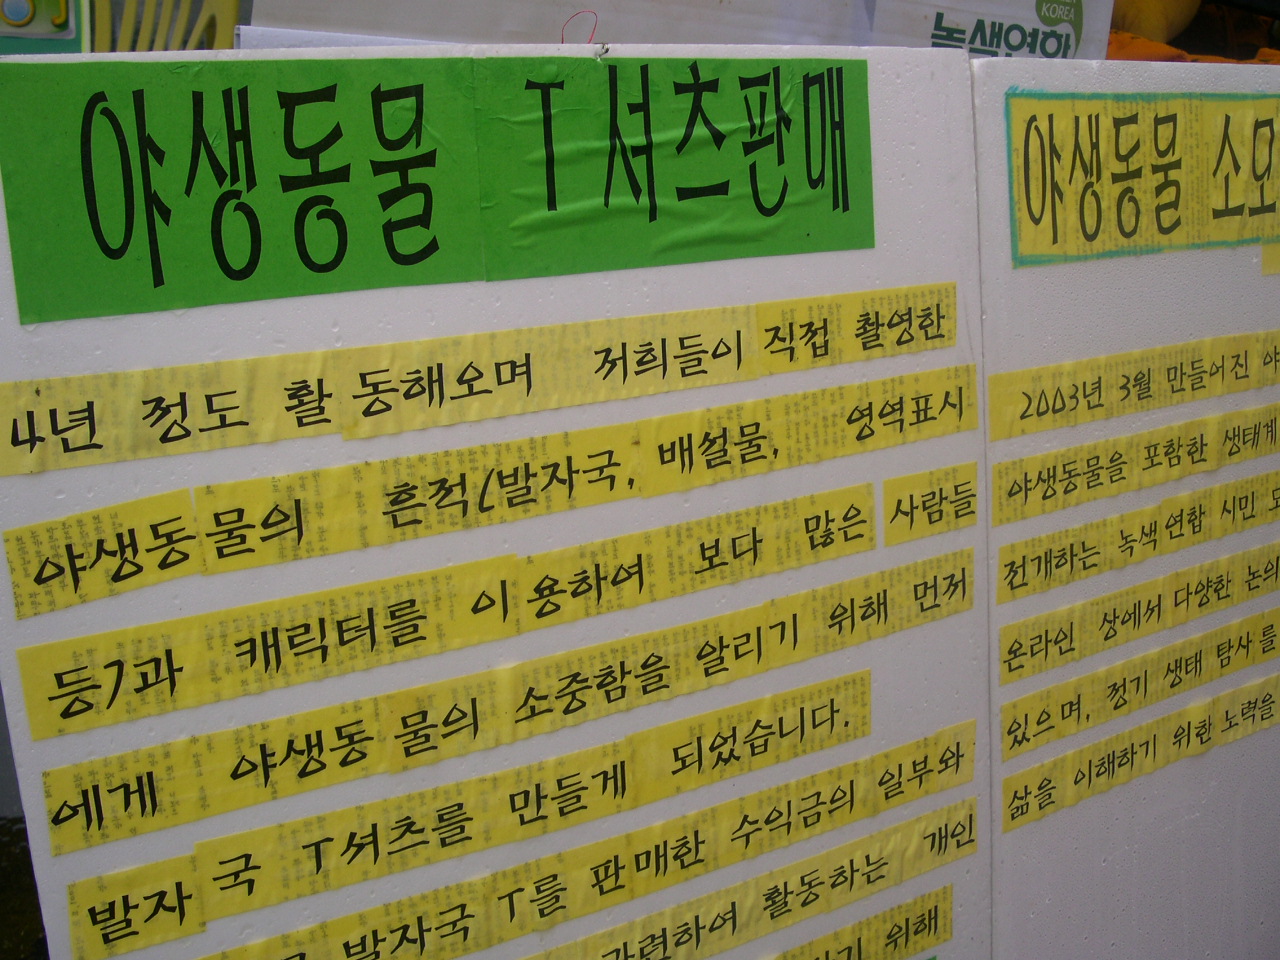 KOREA
녹색연합
야생동물 T셔츠판매
4년 정도 활동해오며 저희들이 직접 촬영한
야생동물의 흔적(발자국, 배설물, 영역표시
등)과 캐릭터를 이용하여 보다 많은 사람들
에게 야생동물의 소중함을 알리기 위해 먼저
발자국 T셔츠를 만들게 되었습니다.
발자국 T를 판매한 수익금의 일부와
관련하여 활동하는 개인
위해
야생동물 소모
2003년 3월 만들어진 야
야생동물을 포함한 생태계
전개하는 녹색연합 시민
온라인 상에서 다양한 논의
있으며, 정기 생태 탐사를
삶을 이해하기 위한 노력을